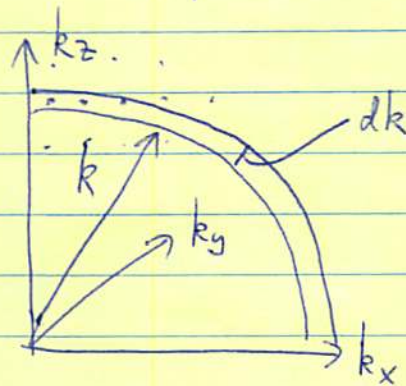 kz
dk
k
ky
kx